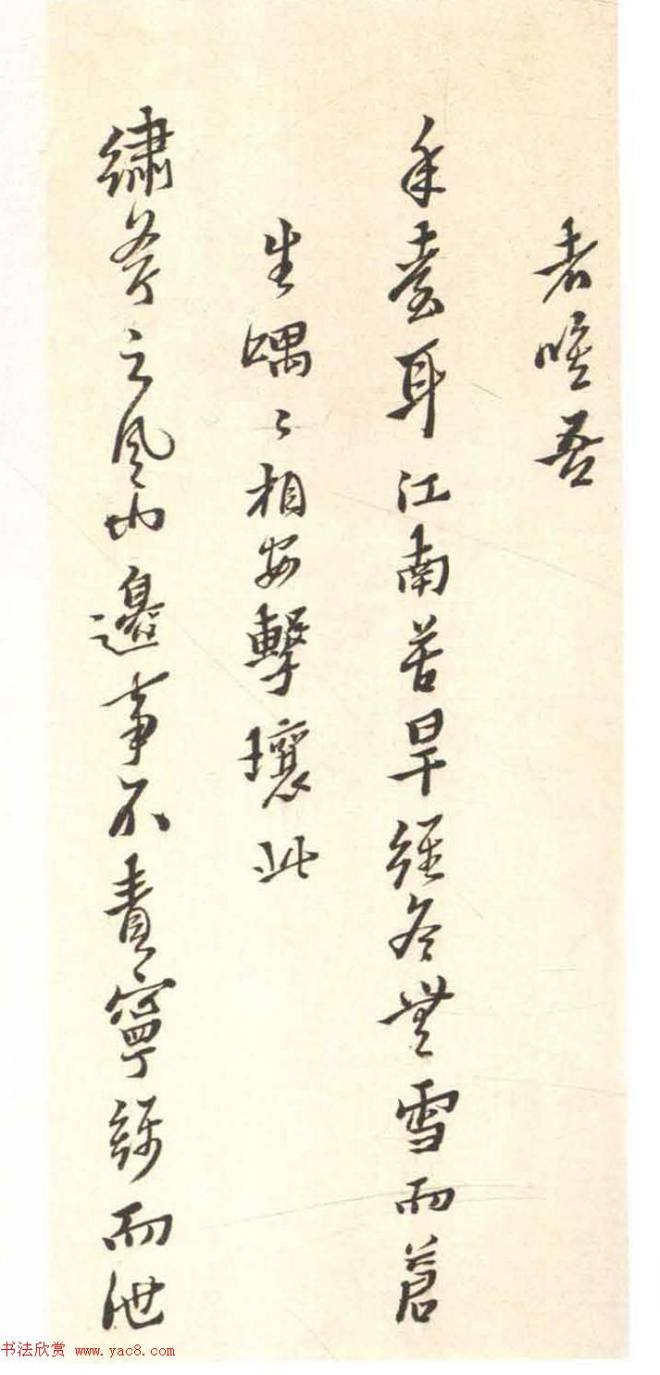 者唯吾
年臺耳江南苦旱經冬無雪而蒼
生喁〻相安擊壤此
繡斧之風也邊事不責寧錦而泄
书法欣赏 www.yac8.com